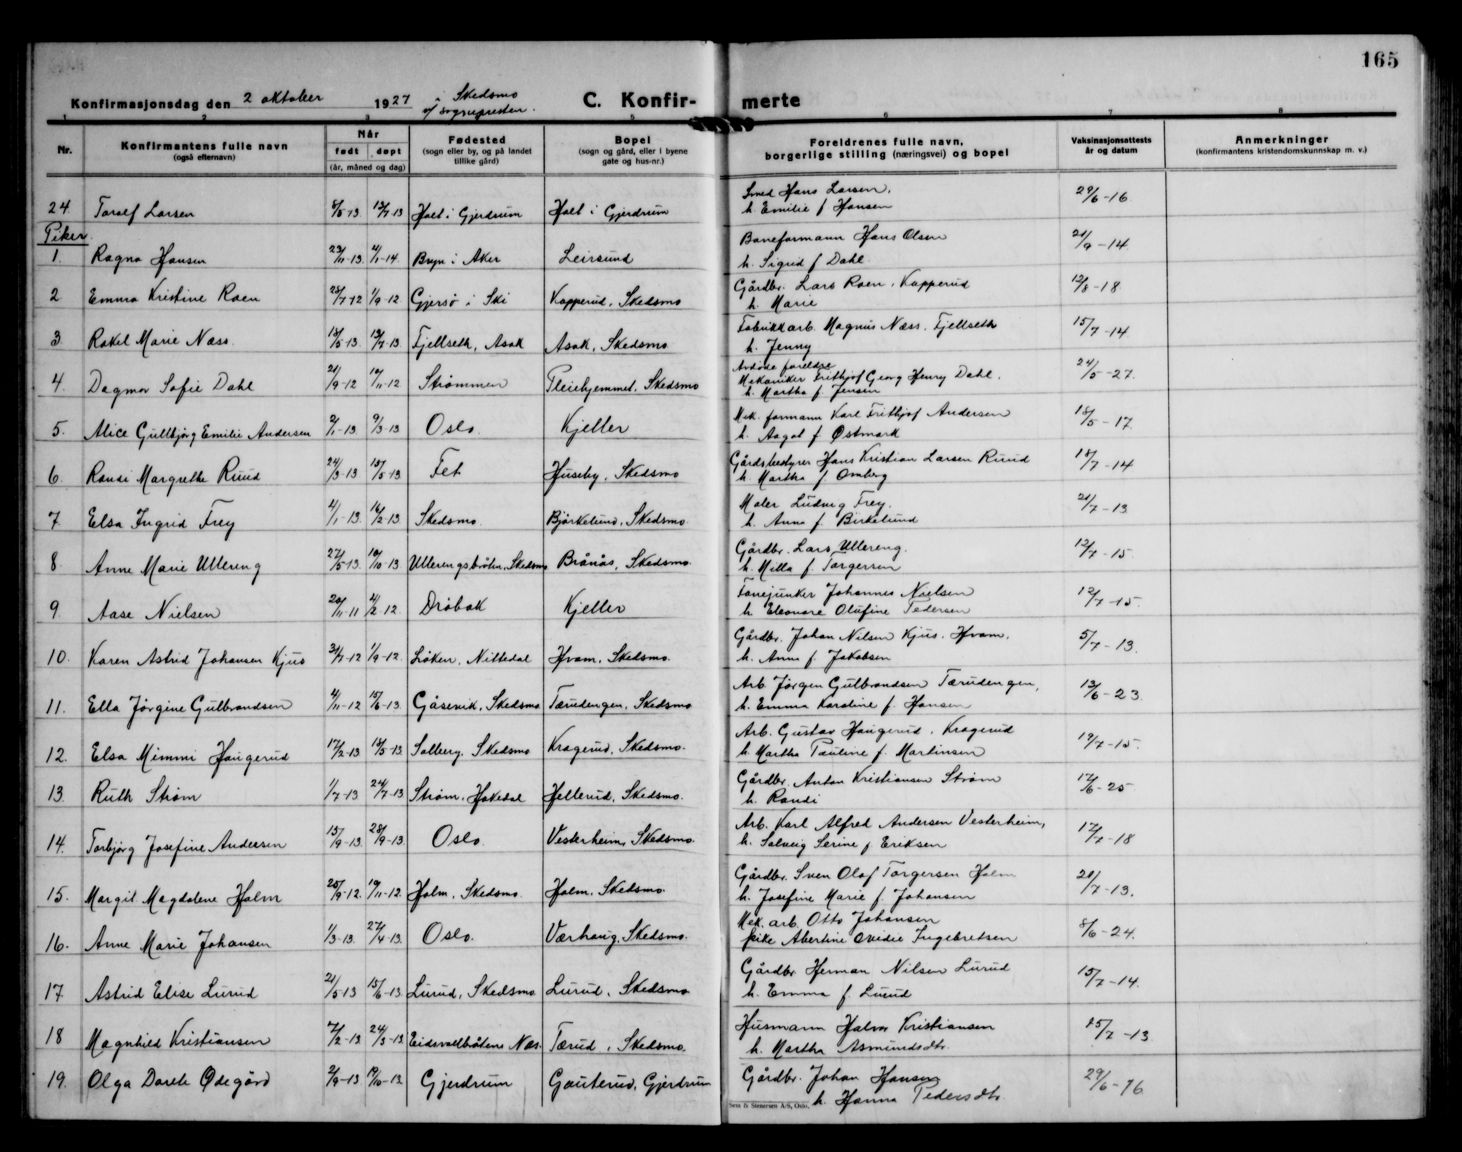 165
Konfirmasjonsdag den 2 oktober 1927 i Skedsmo
v/ sognepresten.
C. Konfir- merte
1 2 3 5 6 7 8
Nr. Konfirmantens fulle navn (også efternavn) Når født døpt (år, måned og dag) Fødested (sogn eller by, og på landet tillike gård) Bopel (sogn og gård, eller i byene gate og hus-nr.) Foreldrenes fulle navn, borgerlige stilling (næringsvei) og bopel Vaksinasjonsattests år og datum Anmerkninger (konfirmantens kristendomskunnskap m. v.)
24 Toralf Larsen 8/5-13 13/7-13 Holt i Gjerdrum Holt i Gjerdrum Smed Hans Larsen, 29/6-16
h. Emilie f Hansen
Piker.
1. Ragna Hansen 23/11-13 4/1-14 Bryn i Aker Leirsund Baneformann Hans Olsen 21/9-14
h. Sigrid f Dahl.
2 Emma Kristine Roen 25/7-12 1/9-12 Gjersø i Ski Kopperud, Skedsmo Gårdbr. Lars Roen, Kopperud 12/8-18
h. Marie
3 Rakel Marie Næss 18/5-13 13/7-13 Fjellseth, Asak Asak, Skedsmo Fabrikkarb. Magnus Næss, Fjellseth 15/7-14
h. Jenny
4. Dagmar Sofie Dahl 21/9-12 10/11-12 Strømmen Pleiehjemmet, Skedsmo Avdøde foreldre 24/5-27.
Mekaniker Frithjof Georg Henry Dahl.
h. Martha f Jensen
5. Alice Gullbjørg Emilie Andersen 2/1-13 9/3-13 Oslo. Kjeller Mek. formann Karl Frithjof Andersen 18/5-17.
h. Aagot f Østmark
6 Randi Margrethe Ruud 24/3-13 15/5-13 Fet Huseby, Skedsmo Gårdsbestyrer Hans Kristian Larsen Ruud 18/7-14
h. Martha f Omberg
7 Elsa Ingrid Frey 4/1-13 16/2-13 Skedsmo. Bjørkelund, Skedsmo Maler Ludvig Frey. 21/7-13
h. Anna f. Birkelund
8. Anne Marie Ullereng 27/5-13 19/10-13 Ullerengsbråten, Skedsmo Brånås, Skedsmo. Gårdbr. Lars Ullereng. 12/7-15.
h. Milla f Torgersen
9 Aase Nielsen 20/11-11 4/2-12 Drøbak Kjeller Fanejunker Johannes Nielsen 12/7-15.
h. Eleonore Olufine Pedersen
10. Karen Astrid Johansen Kjus 21/7-12 1/9-12. Løken, Nittedal Hvam, Skedsmo. Gårdbr. Johan Nilsen Kjus, Hvam. 5/7-13.
h. Anna f. Jakobsen
11. Ella Jørgine Gulbrandsen 4/11-12 15/6-13 Gåsevik, Skedsmo Tærudengen, Skedsmo Arb. Jørgen Gulbrandsen Tærudengen, 13/6-23
h. Emma Karoline f Hansen
12. Elsa Mimmi Haugerud 17/2-13 18/5-13 Solberg, Skedsmo Kragerud, Skedsmo. Arb. Gustav Haugerud, Kragerud 19/7-15.
h. Martha Pauline f. Martinsen
13. Ruth Strøm 1/7-13. 24/7-13 Strøm, Hakedal Hellerud, Skedsmo. Gårdbr. Anton Kristiansen Strøm 12/6-25
h. Randi
14. Torbjørg Josefine Andersen 15/9-13. 28/9-13. Oslo. Vesterheim, Skedsmo. Arb. Karl Alfred Andersen Vesterheim, 12/7-18
h. Solveig Serine f Eriksen
15. Margit Magdalene Holm 25/9-12. 10/11-12. Holm, Skedsmo. Holm, Skedsmo. Gårdbr. Sven Olaf Torgersen Holm 21/7-13.
h. Josefine Marie f Johansen
16. Anne Marie Johansen 1/3-13. 27/4-13. Oslo. Værhaug, Skedsmo. Mek. arb. Otto Johansen 8/6-24.
pike Abertine Ovidie Ingebretsen
17. Astrid Elise Lurud 21/5-13 15/6-13 Lurud, Skedsmo Lurud, Skedsmo Gårdbr Herman Nilsen Lurud 15/7-14.
h. Emma f. Lurud
18 Magnhild Kristiansen 7/2-13 24/3-13 Eidsvoldbråtene Næs. Tærud, Skedsmo. Husmann Halvor Kristiansen 15/7-13
h. Martha Asmundsdtr.
19. Olga Dorete Ødegård 2/9-13. 19/10-13. Gjerdrum Gauterud, Gjerdrum Gårdbr. Johan Hansen 29/6-16
h. Hanna Pedersdtr.
Sem & Stenersen A/S, Oslo.